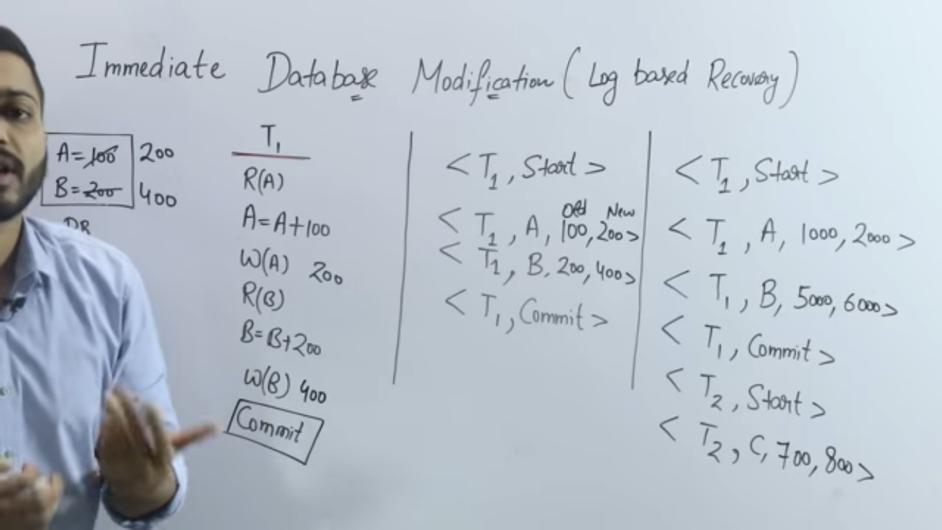 Immediate Database Modification (Log based Recovery)
A=100 200
B=200 400
DB
T1
R(A)
A=A+100
W(A) 200
R(B)
B=B+200
W(B) 400
Commit
<T1, Start>
Old New
<T1, A, 100, 200>
<T1, B, 200, 400>
<T1, Commit>
<T1, Start>
<T1, A, 1000, 2000>
<T1, B, 5000, 6000>
<T1, Commit>
<T2, Start>
<T2, C, 700, 800>